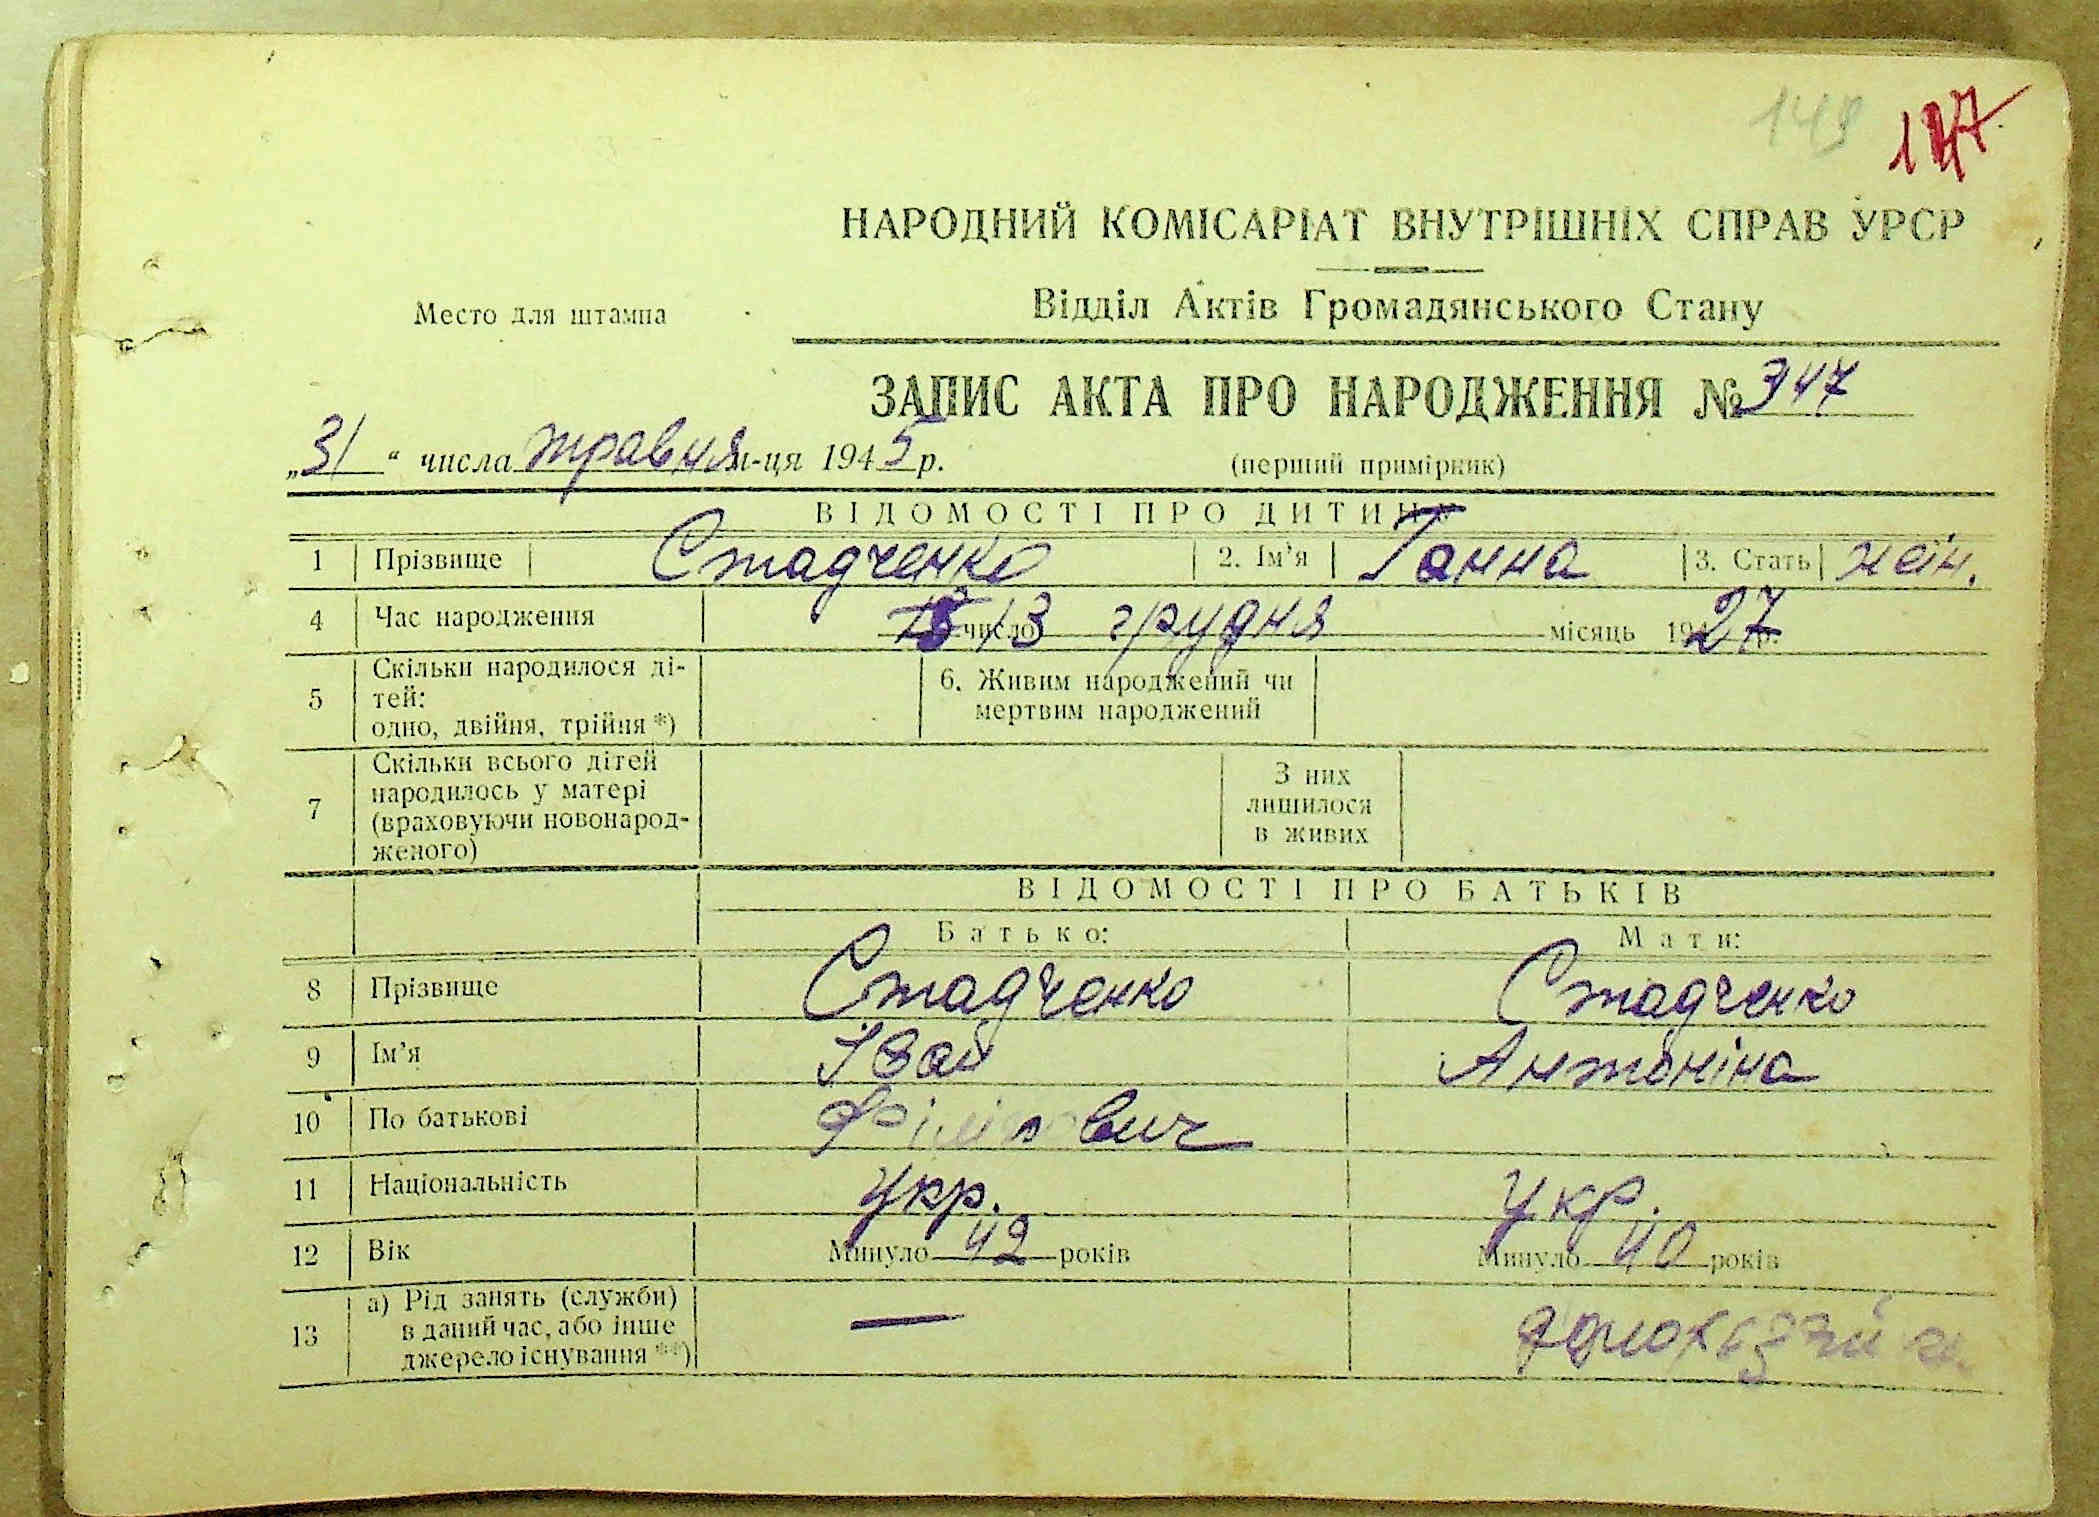 149 147
НАРОДНИЙ КОМІСАРІАТ ВНУТРІШНІХ СПРАВ УРСР
Место для штампа
Відділ Актів Громадянського Стану
ЗАПИС АКТА ПРО НАРОДЖЕННЯ № 347
„31“ числа травня м-ця 1945 р. (перший примірник)
ВІДОМОСТІ ПРО ДИТИНУ
1 Прізвище Стадченко 2. Ім'я Ганна 3. Стать жін.
4 Час народження число 13 грудня місяць 1927 р.
5 Скільки народилося ді-
тей:
одно, двійня, трійня *)
6. Живим народжений чи
мертвим народжений
7 Скільки всього дітей
народилось у матері
(враховуючи новонарод-
женого)
З них
лишилося
в живих
ВІДОМОСТІ ПРО БАТЬКІВ
Батько: Мати:
8 Прізвище Стадченко Стадченко
9 Ім'я Іван Антоніна
10 По батькові Філіпович
11 Національність Укр. Укр.
12 Вік Минуло 42 років Минуло 40 років
13 а) Рід занять (служби)
в даний час, або інше
джерело існування **)
—